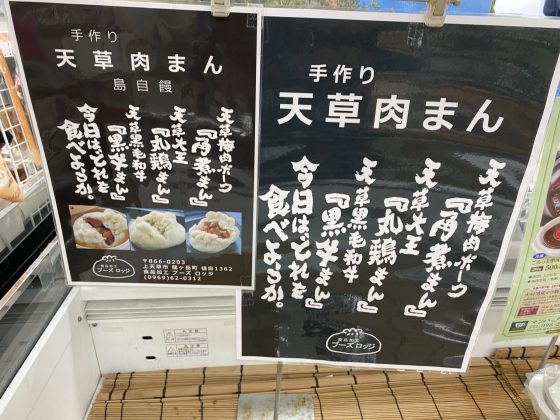 手作り
天草肉まん
島自饅
天草梅肉ポーク
『角煮まん』
天草大王
『丸鶏まん』
天草黒毛和牛
『黒牛まん』
今日はどれを
食べようか。
〒866-0203
上天草市 龍ヶ岳町 樋島1362
食品加工 ブーズ ロッジ
(0969)62-0312
食品加工
ブーズ ロッジ
手作り
天草肉まん
天草梅肉ポーク
『角煮まん』
天草大王
『丸鶏まん』
天草黒毛和牛
『黒牛まん』
今日はどれを
食べようか。
食品加工
ブーズ ロッジ